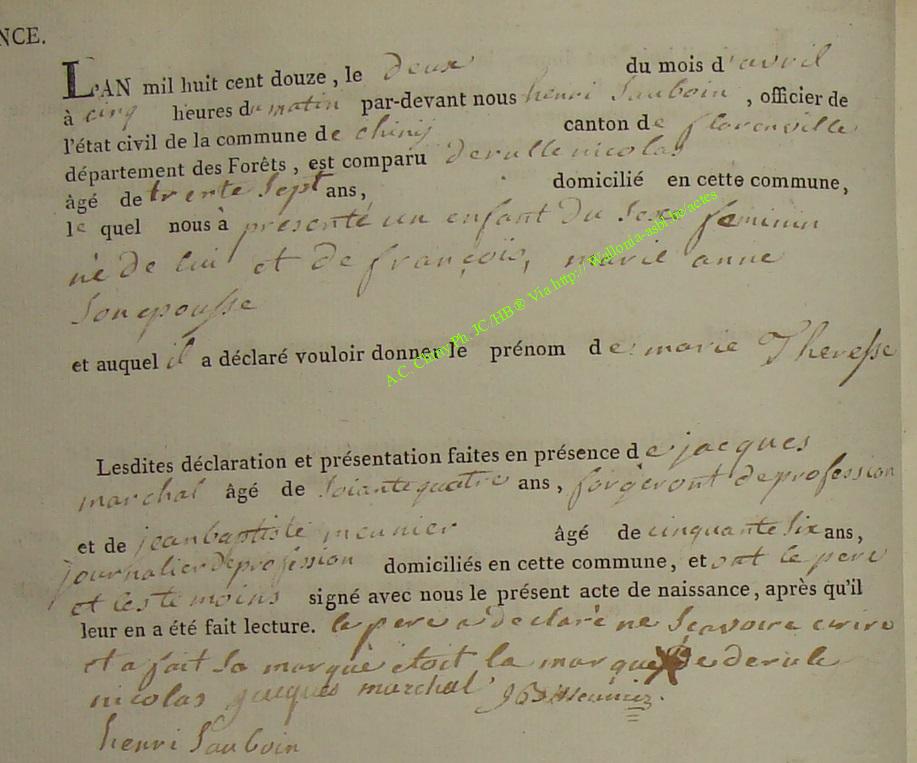 NCE.
L'AN mil huit cent douze, le deux du mois d'avril
à cinq heures du matin par-devant nous henri Sauboin, officier de
l'état civil de la commune de chiny canton de florenville
département des Forêts, est comparu derulle nicolas
âgé de trente Sept ans, domicilié en cette commune,
le quel nous à presenté un enfant du Sexe feminin
né de lui et de françois, marie anne
Son epousse
et auquel il a déclaré vouloir donner le prénom de marie Theresse
Lesdites déclaration et présentation faites en présence de jacques
marchal âgé de Soiante quatre ans, forgeront de profession
et de jean baptiste meunier âgé de cinquante Six ans,
journalier de profession domiciliés en cette commune, et ont le pere
et les temoins signé avec nous le présent acte de naissance, après qu'il
leur en a été fait lecture. le pere a declaré ne Scavoire crire
et a fait Sa marque etoit la marque X de derule
nicolas jacques marchal JB Meunier.
henri Sauboin
A.C. Chiny Ph. JC/HB ® Via http://Wallonia-asbl.be/actes